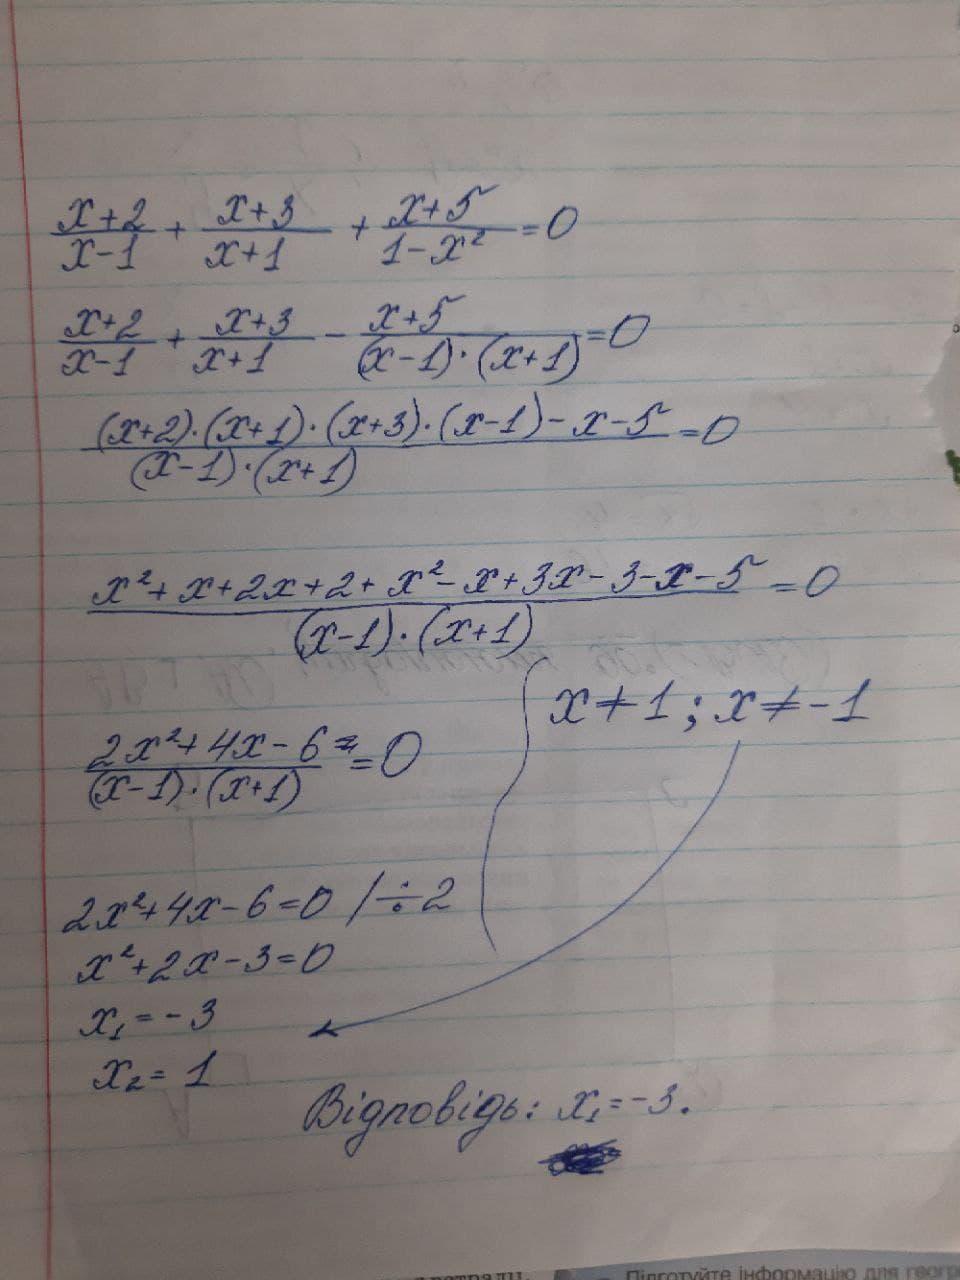 (x+2)/(x-1) + (x+3)/(x+1) + (x+5)/(1-x²) = 0
(x+2)/(x-1) + (x+3)/(x+1) - (x+5)/((x-1)·(x+1)) = 0
((x+2)·(x+1)·(x+3)·(x-1)-x-5)/((x-1)·(x+1)) = 0
(x²+x+2x+2+x²-x+3x-3-x-5)/((x-1)·(x+1)) = 0
x≠1; x≠-1
(2x²+4x-6)/((x-1)·(x+1)) = 0
2x²+4x-6=0 /÷2
x²+2x-3=0
x₁=-3
x₂=1
Відповідь: x₁=-3.
Підготуйте інформацію для